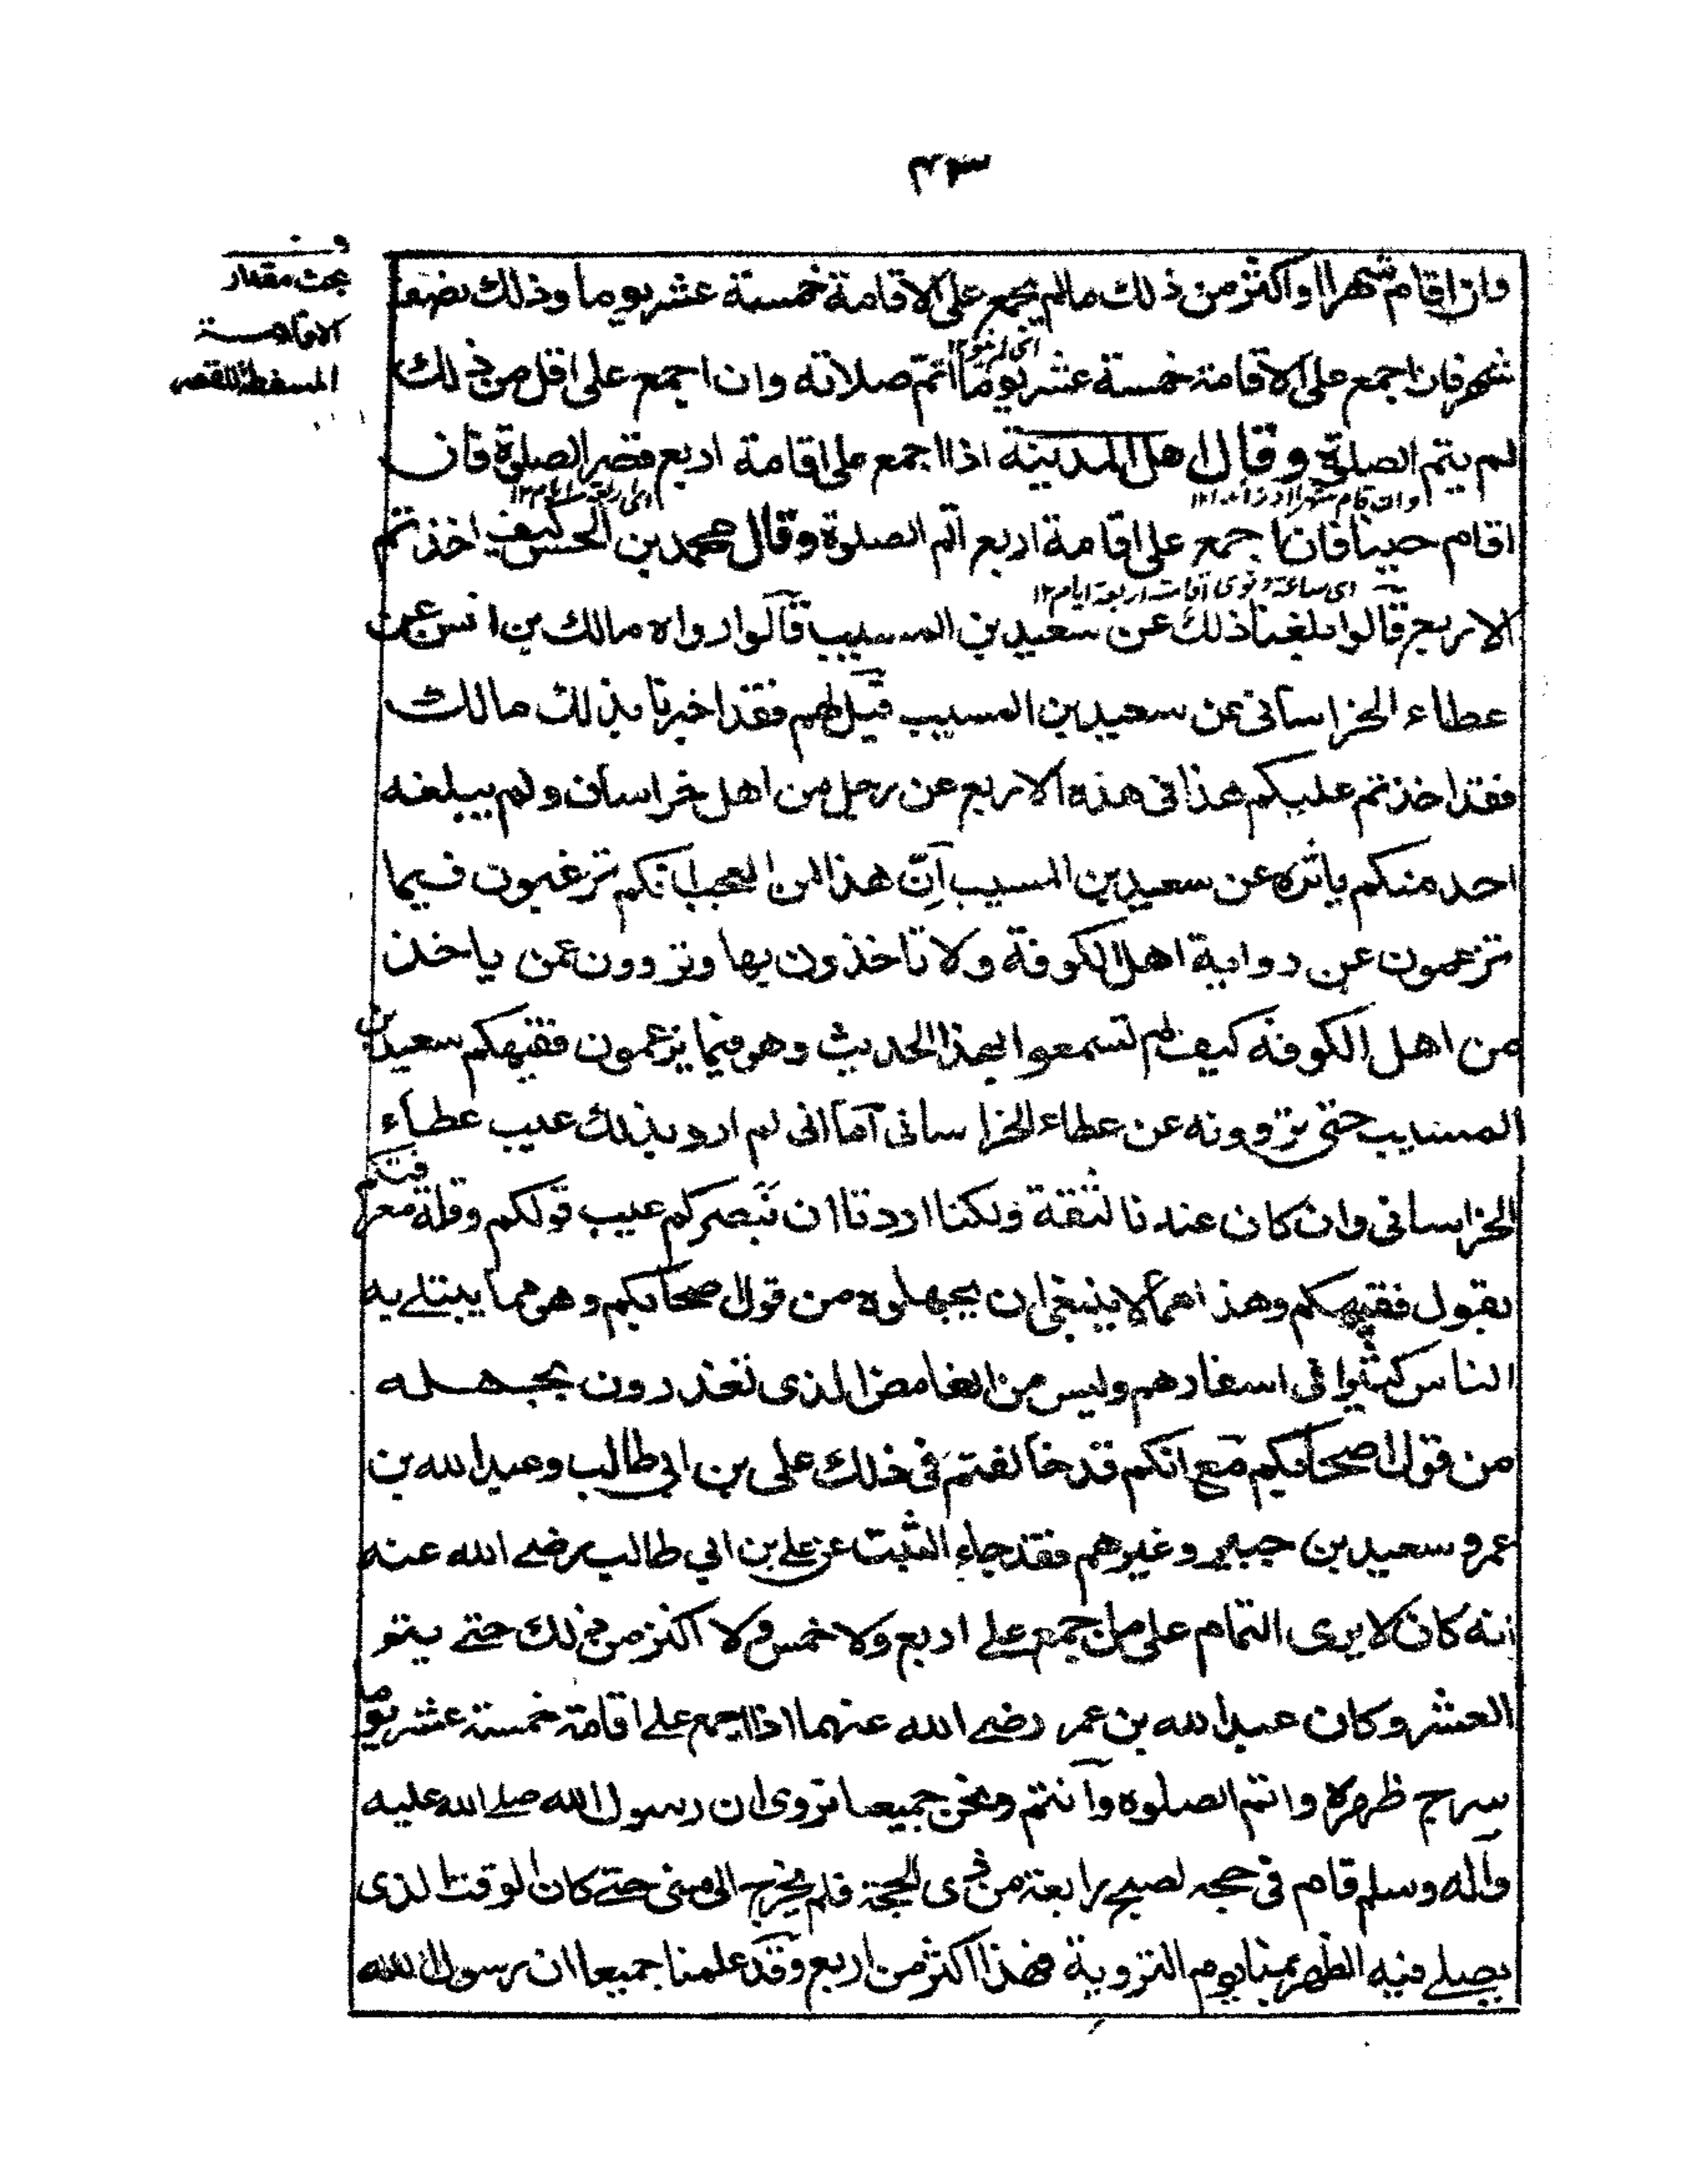 ٤٣
ف
بحث مقدار
الاقامة
المسقطة للقصر
وان اقام شهرا او اكثر من ذلك مالم يجمع على الاقامة خمسة عشر يوما وذلك نصف
شهر فان اجمع على الاقامة خمسة عشر يوما اتم صلاته وان اجمع على اقل من ذلك
لم يتم الصلوة وقال اهل المدينة اذا اجمع على اقامة اربع قصر الصلوة فان
وان قام شهرا او زائدا ١٢ اى اربعة ايام ١٢
اقام حينا فان اجمع على اقامة اربع اتم الصلوة وقال محمد بن الحسن كيف اخذتم
اى ساعة ونوى اقامت اربعة ايام ١٢
الاربع قالوا بلغنا ذلك عن سعيد بن المسيب قالوا رواه مالك بن انس عن
عطاء الخراسانى عن سعيد بن المسيب قيل لهم فقد اخبرنا بذلك مالك
فقد اخذتم عليكم هذا فى هذه الاربع عن رجل من اهل خراسان ولم يبلغه
احد منكم ياثره عن سعيد بن المسيب ان هذا لمن العجب انكم ترغبون فيما
تزعمون عن رواية اهل الكوفة ولا تاخذون بها وتروون عمن ياخذ
من اهل الكوفة كيف لم تسمعوا بهذا الحديث وهو فيما يزعمون فقيهكم سعيد بن
المسيب حتى تروونه عن عطاء الخراسانى اما انى لم ارو بذلك عيب عطاء
الخراسانى وان كان عندنا لثقة ولكنا اردنا ان نبصركم عيب قولكم وقلة معرفتكم
بقول فقيهكم وهذا مما لا ينبغى ان يجهلوه من قول صحابكم وهو مما يبتلى به
الناس كثيرا فى اسفارهم وليس من الغامض الذى تعذرون بجهله
من قول اصحابكم مع انكم قد خالفتم فى ذلك على بن ابى طالب وعبد الله بن
عمر وسعيد بن جبير وغيرهم فقد جاء الثبت عن على بن ابي طالب رضى الله عنه
انه كان لا يرى التمام على من اجمع على اربع ولا خمس ولا اكثر من ذلك حتى ينو
العشر وكان عبد الله بن عمر رضى الله عنهما اذا اجمع على اقامة خمسة عشر يوما
سرج ظهره واتم الصلوه وانتم ونحن جميعا نروى ان رسول الله صلى الله عليه
واله وسلم قام فى حجه لصبح رابعة من ذى الحجة فلم يخرج الى منى حتى كان الوقت الذى
يصلى فيه الظهر بمنا يوم التروية فهذا اكثر من اربع وقد علمنا جميعا ان رسول الله